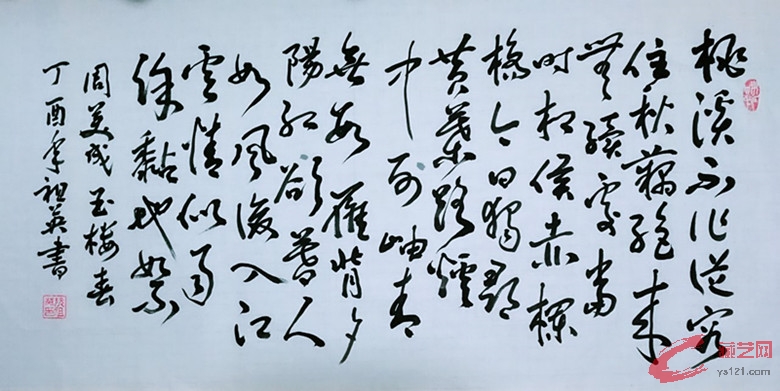 桃溪不作從容
住秋藕絕來
無續處當
時相候赤欄
橋今日獨尋
黃葉路煙
中列岫青
無數雁背夕
陽紅欲暮人
如風後入江
雲情似雨
餘黏地絮
周美成玉樓春
丁酉年祖英書
艺网
ys121.com